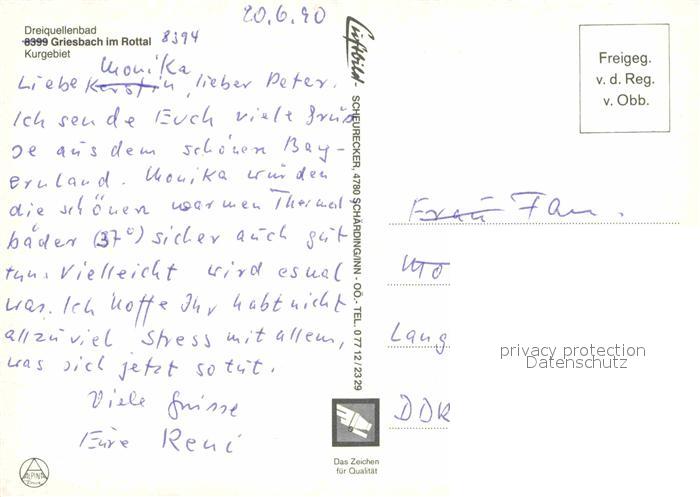 20.6.90
Dreiquellenbad
8399 Griesbach im Rottal 8394
Kurgebiet
Monika
Liebe Kerstin, lieber Peter.
Ich sende Euch viele Grüs
se aus dem schönen Bay-
ernland. Monika würden
die schönen warmen Thermal
bäder (37°) sicher auch gut
tun. Vielleicht wird es mal
was. Ich hoffe Ihr habt nicht
allzuviel Stress mit allem,
was sich jetzt so tut.
Viele Grüsse
Eure René
ALPINA
Luftbild - SCHEURECKER, 4780 SCHÄRDING/INN - OÖ. - TEL. 0 77 12 / 23 29
Das Zeichen
für Qualität
Freigeg.
v. d. Reg.
v. Obb.
Frau Fam.
Mo
Lang
DDR
privacy protection
Datenschutz